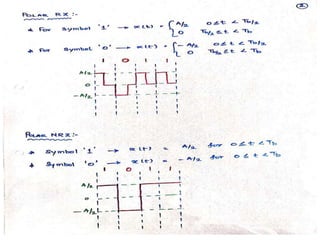 ②
POLAR RZ :-
* For Symbol '1' → x(t) = { A/2 0≤t < Tb/2
0 Tb/2 ≤ t < Tb
* For Symbol '0' → x(t) = { -A/2 0≤t < Tb/2
0 Tb/2 ≤ t < Tb
1 0 1 1
A/2
0
-A/2
POLAR NRZ :-
* Symbol '1' → x(t) = A/2 for 0≤t<Tb
* Symbol '0' → x(t) = -A/2 for 0≤t<Tb
1 0 1 1
A/2
0
-A/2